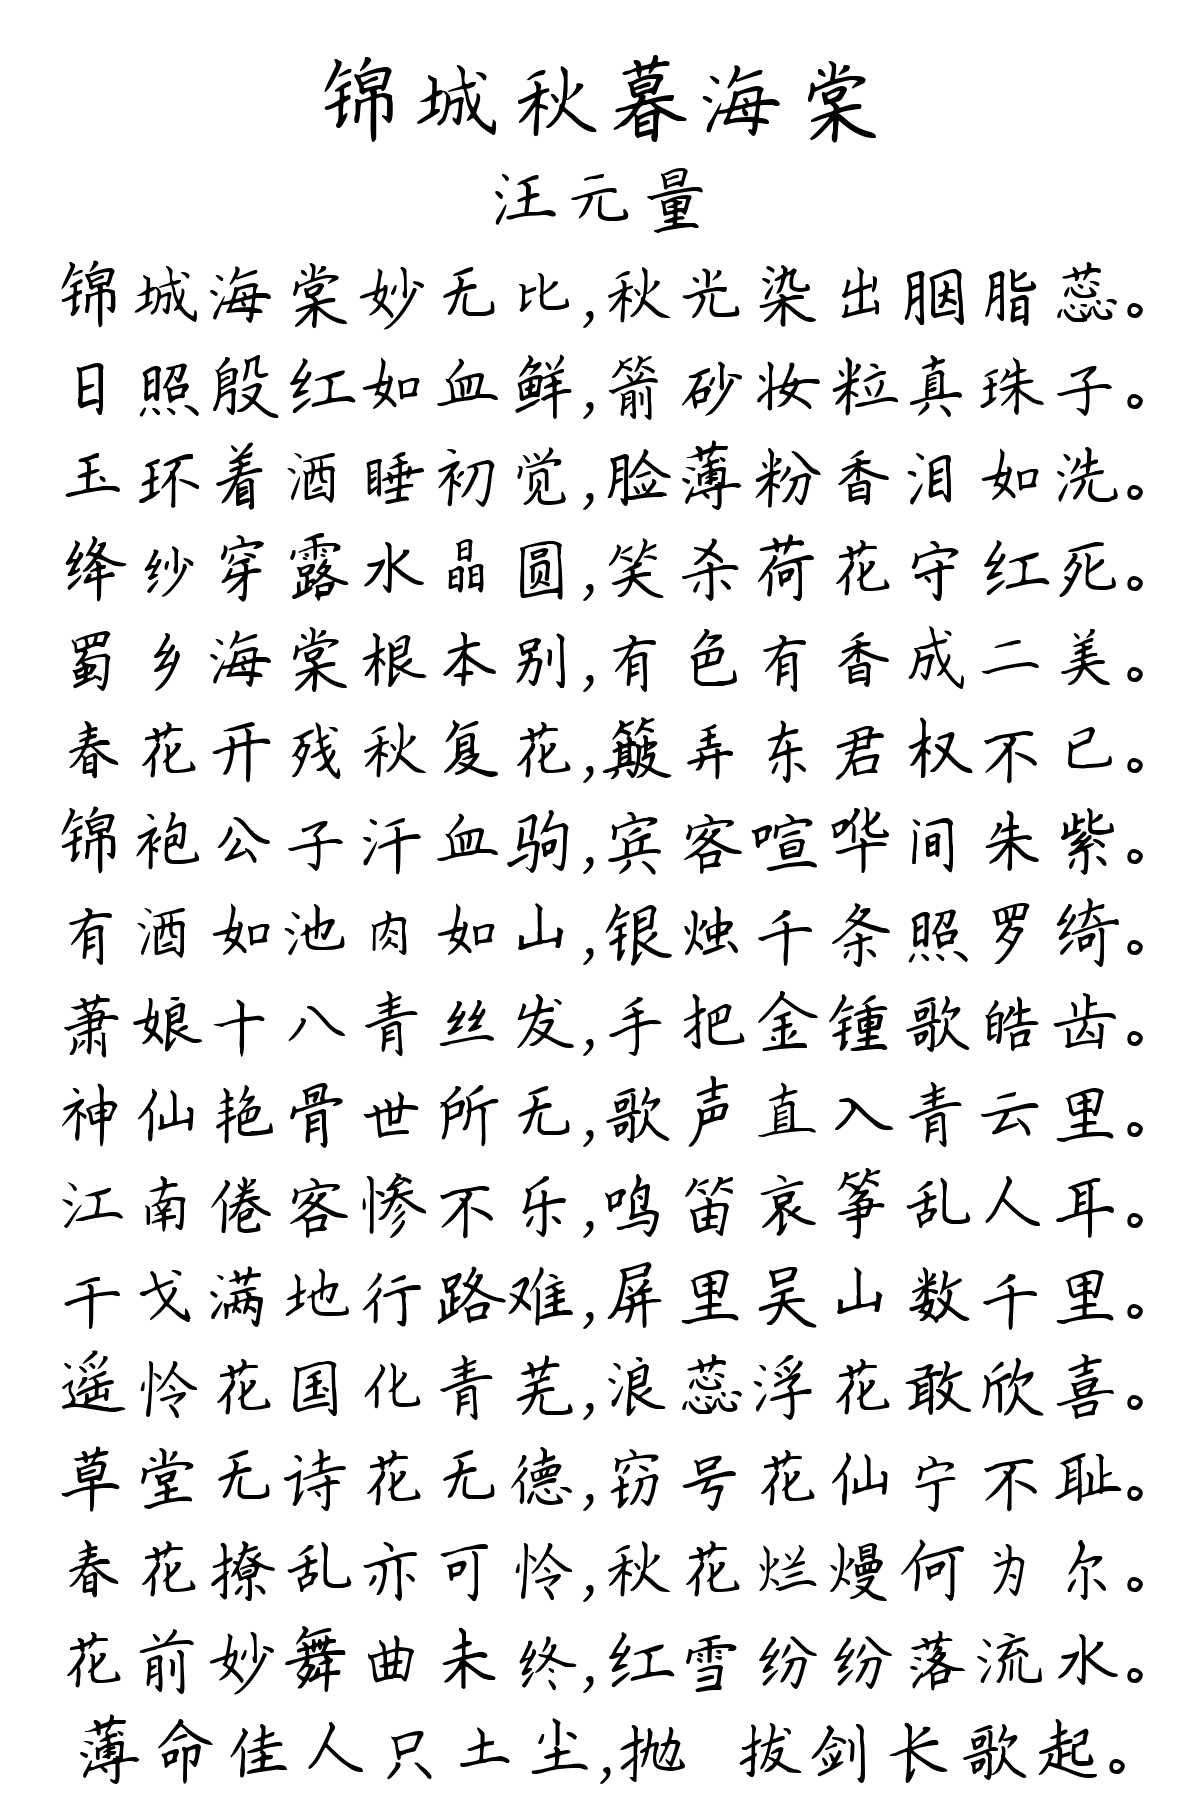 锦城秋暮海棠
汪元量
锦城海棠妙无比,秋光染出胭脂蕊。
日照殷红如血鲜,箭砂妆粒真珠子。
玉环着酒睡初觉,脸薄粉香泪如洗。
绛纱穿露水晶圆,笑杀荷花守红死。
蜀乡海棠根本别,有色有香成二美。
春花开残秋复花,簸弄东君权不已。
锦袍公子汗血驹,宾客喧哗间朱紫。
有酒如池肉如山,银烛千条照罗绮。
萧娘十八青丝发,手把金锺歌皓齿。
神仙艳骨世所无,歌声直入青云里。
江南倦客惨不乐,鸣笛哀筝乱人耳。
干戈满地行路难,屏里吴山数千里。
遥怜花国化青芜,浪蕊浮花敢欣喜。
草堂无诗花无德,窃号花仙宁不耻。
春花撩乱亦可怜,秋花烂熳何为尔。
花前妙舞曲未终,红雪纷纷落流水。
薄命佳人只土尘,抛 拔剑长歌起。